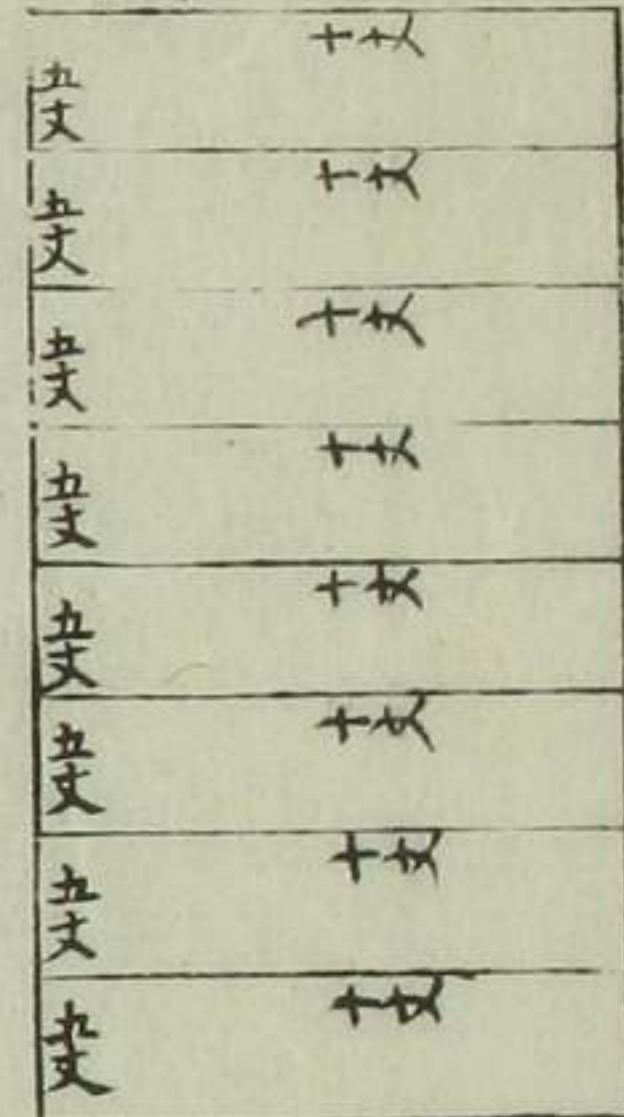 十丈
五丈
十丈
五丈
十丈
五丈
十丈
五丈
十丈
五丈
十丈
五丈
十丈
五丈
十丈
五丈